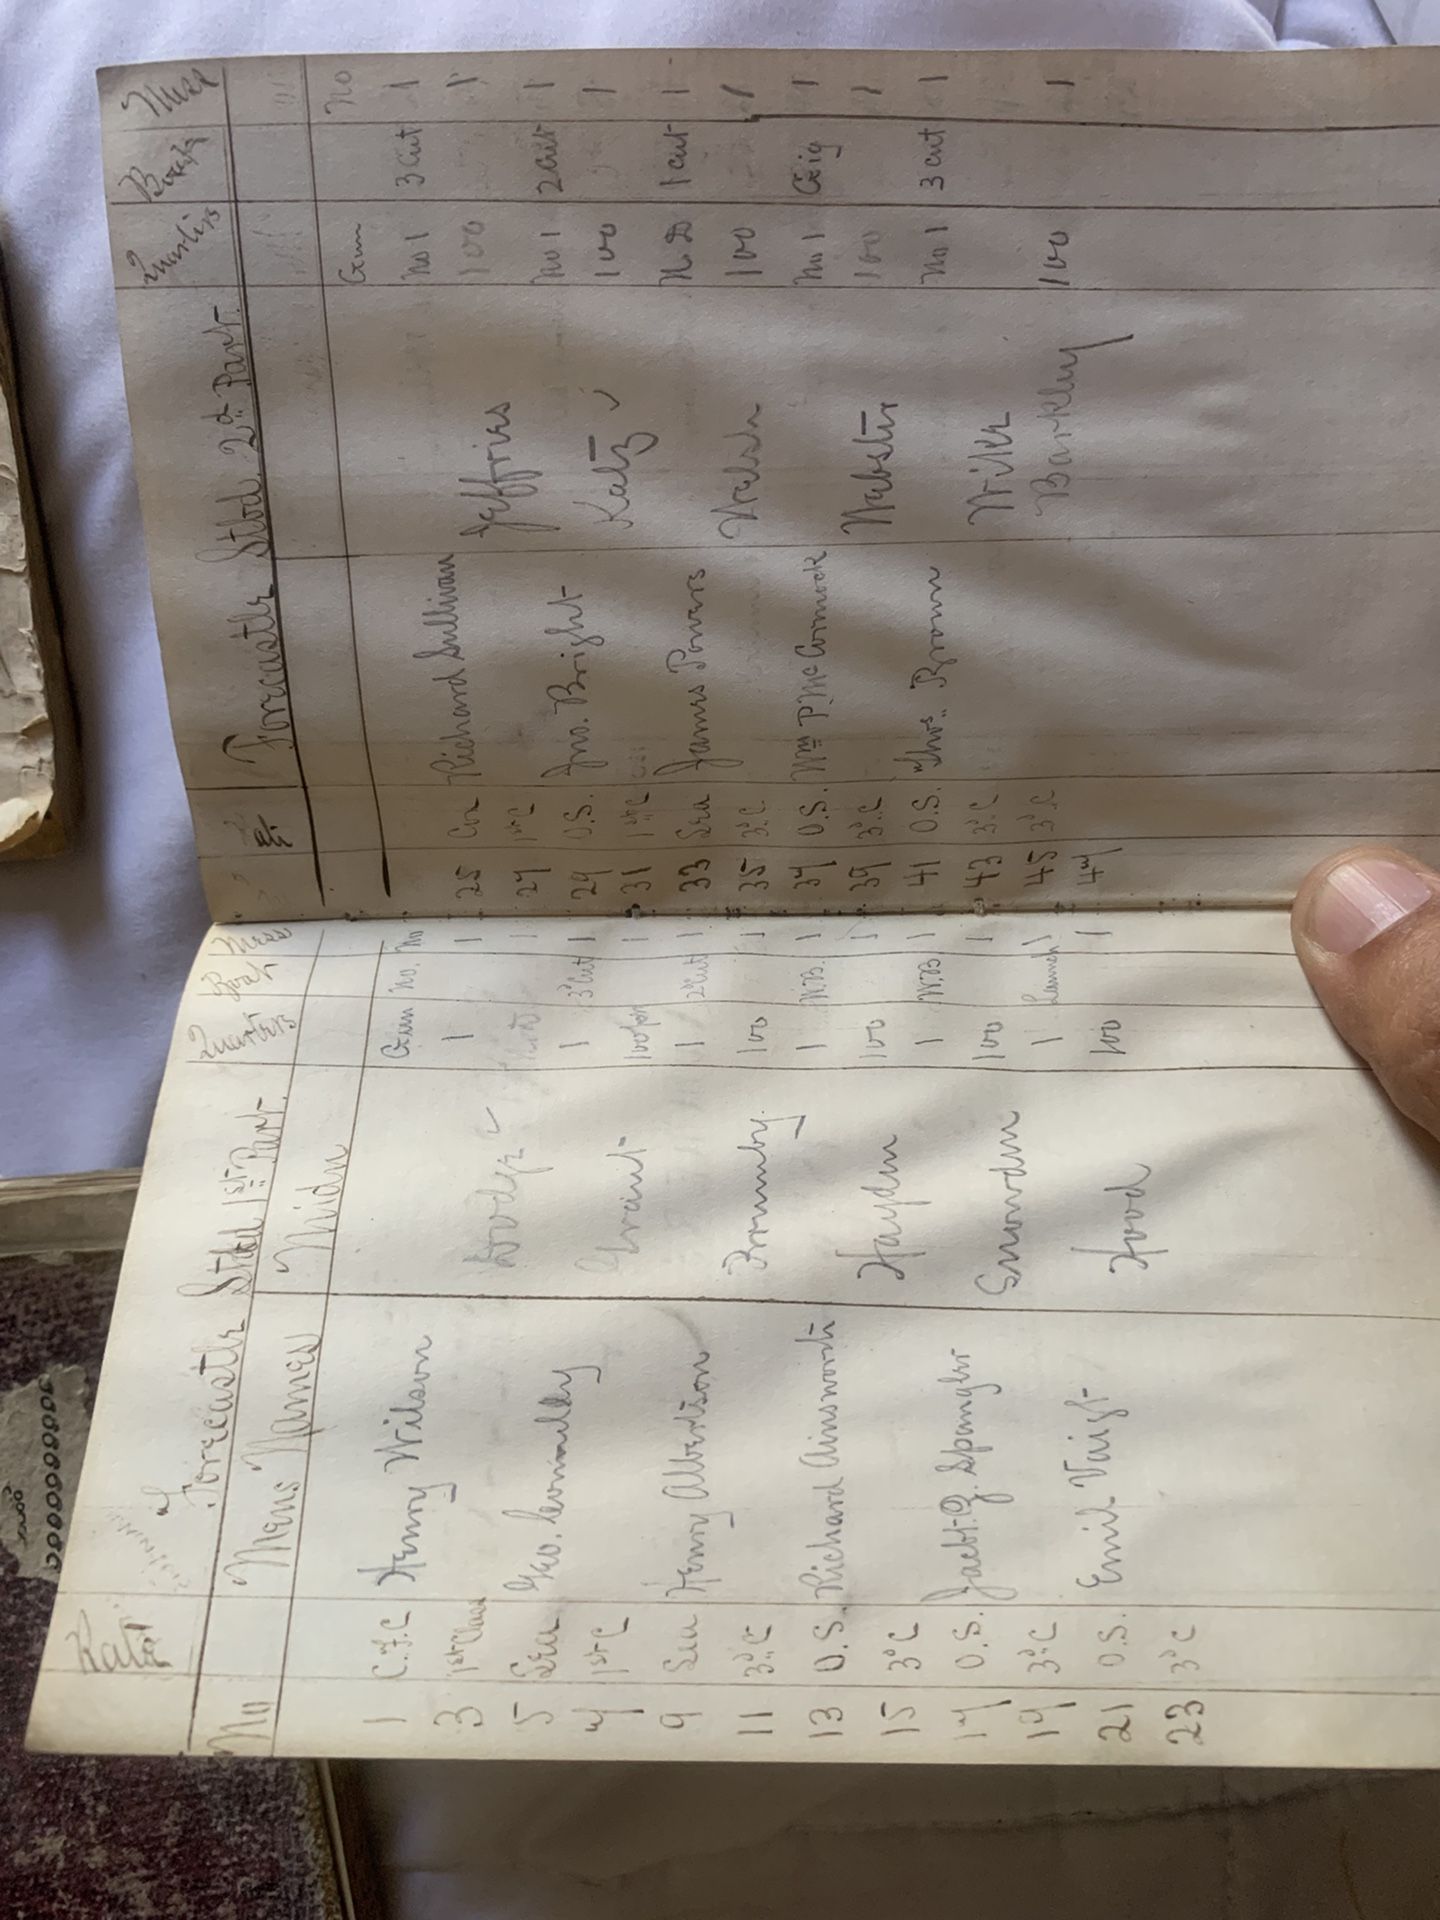 Rate
Forecastle Stbd 1st Part. Quarters Boat Mess
No Mens Names Midn
Gun No. No
1 C.F.C Henry Wilson 1 1
3 1st Class 1
5 Sea 1 3d Cut 1
7 1st C Grant 100 1
9 Sea Henry Albertson 1 2d Cut 1
11 3d C Brumby 100 1
13 O.S. Richard Ainsworth 1 W.B. 1
15 3d C Hayden 100 1
17 O.S. Spangler 1 W.B 1
19 3d C Snowden 100 1
21 O.S. Emil Voigt 1 Launch 1
23 3d C Hood 100 1
Forecastle Stbd. 2d Part. Quarters Boats Mess
Gun No
25 Cox Richard Sullivan No 1 3 Cut 1
27 1st C Jeffries 100 1
29 O.S. Jno. Bright No 1 2 Cut 1
31 1st C Katz 100 1
33 Sea James Powers 1 Cut 1
35 3d C. Welsh 100 1
37 O.S. Wm P. McCormock No 1 Gig 1
39 3d C Webster 100 1
41 O.S. Thos. Brown No 1 3 Cut 1
43 3d C Wilke
45 3d C Barkley 100 1
47